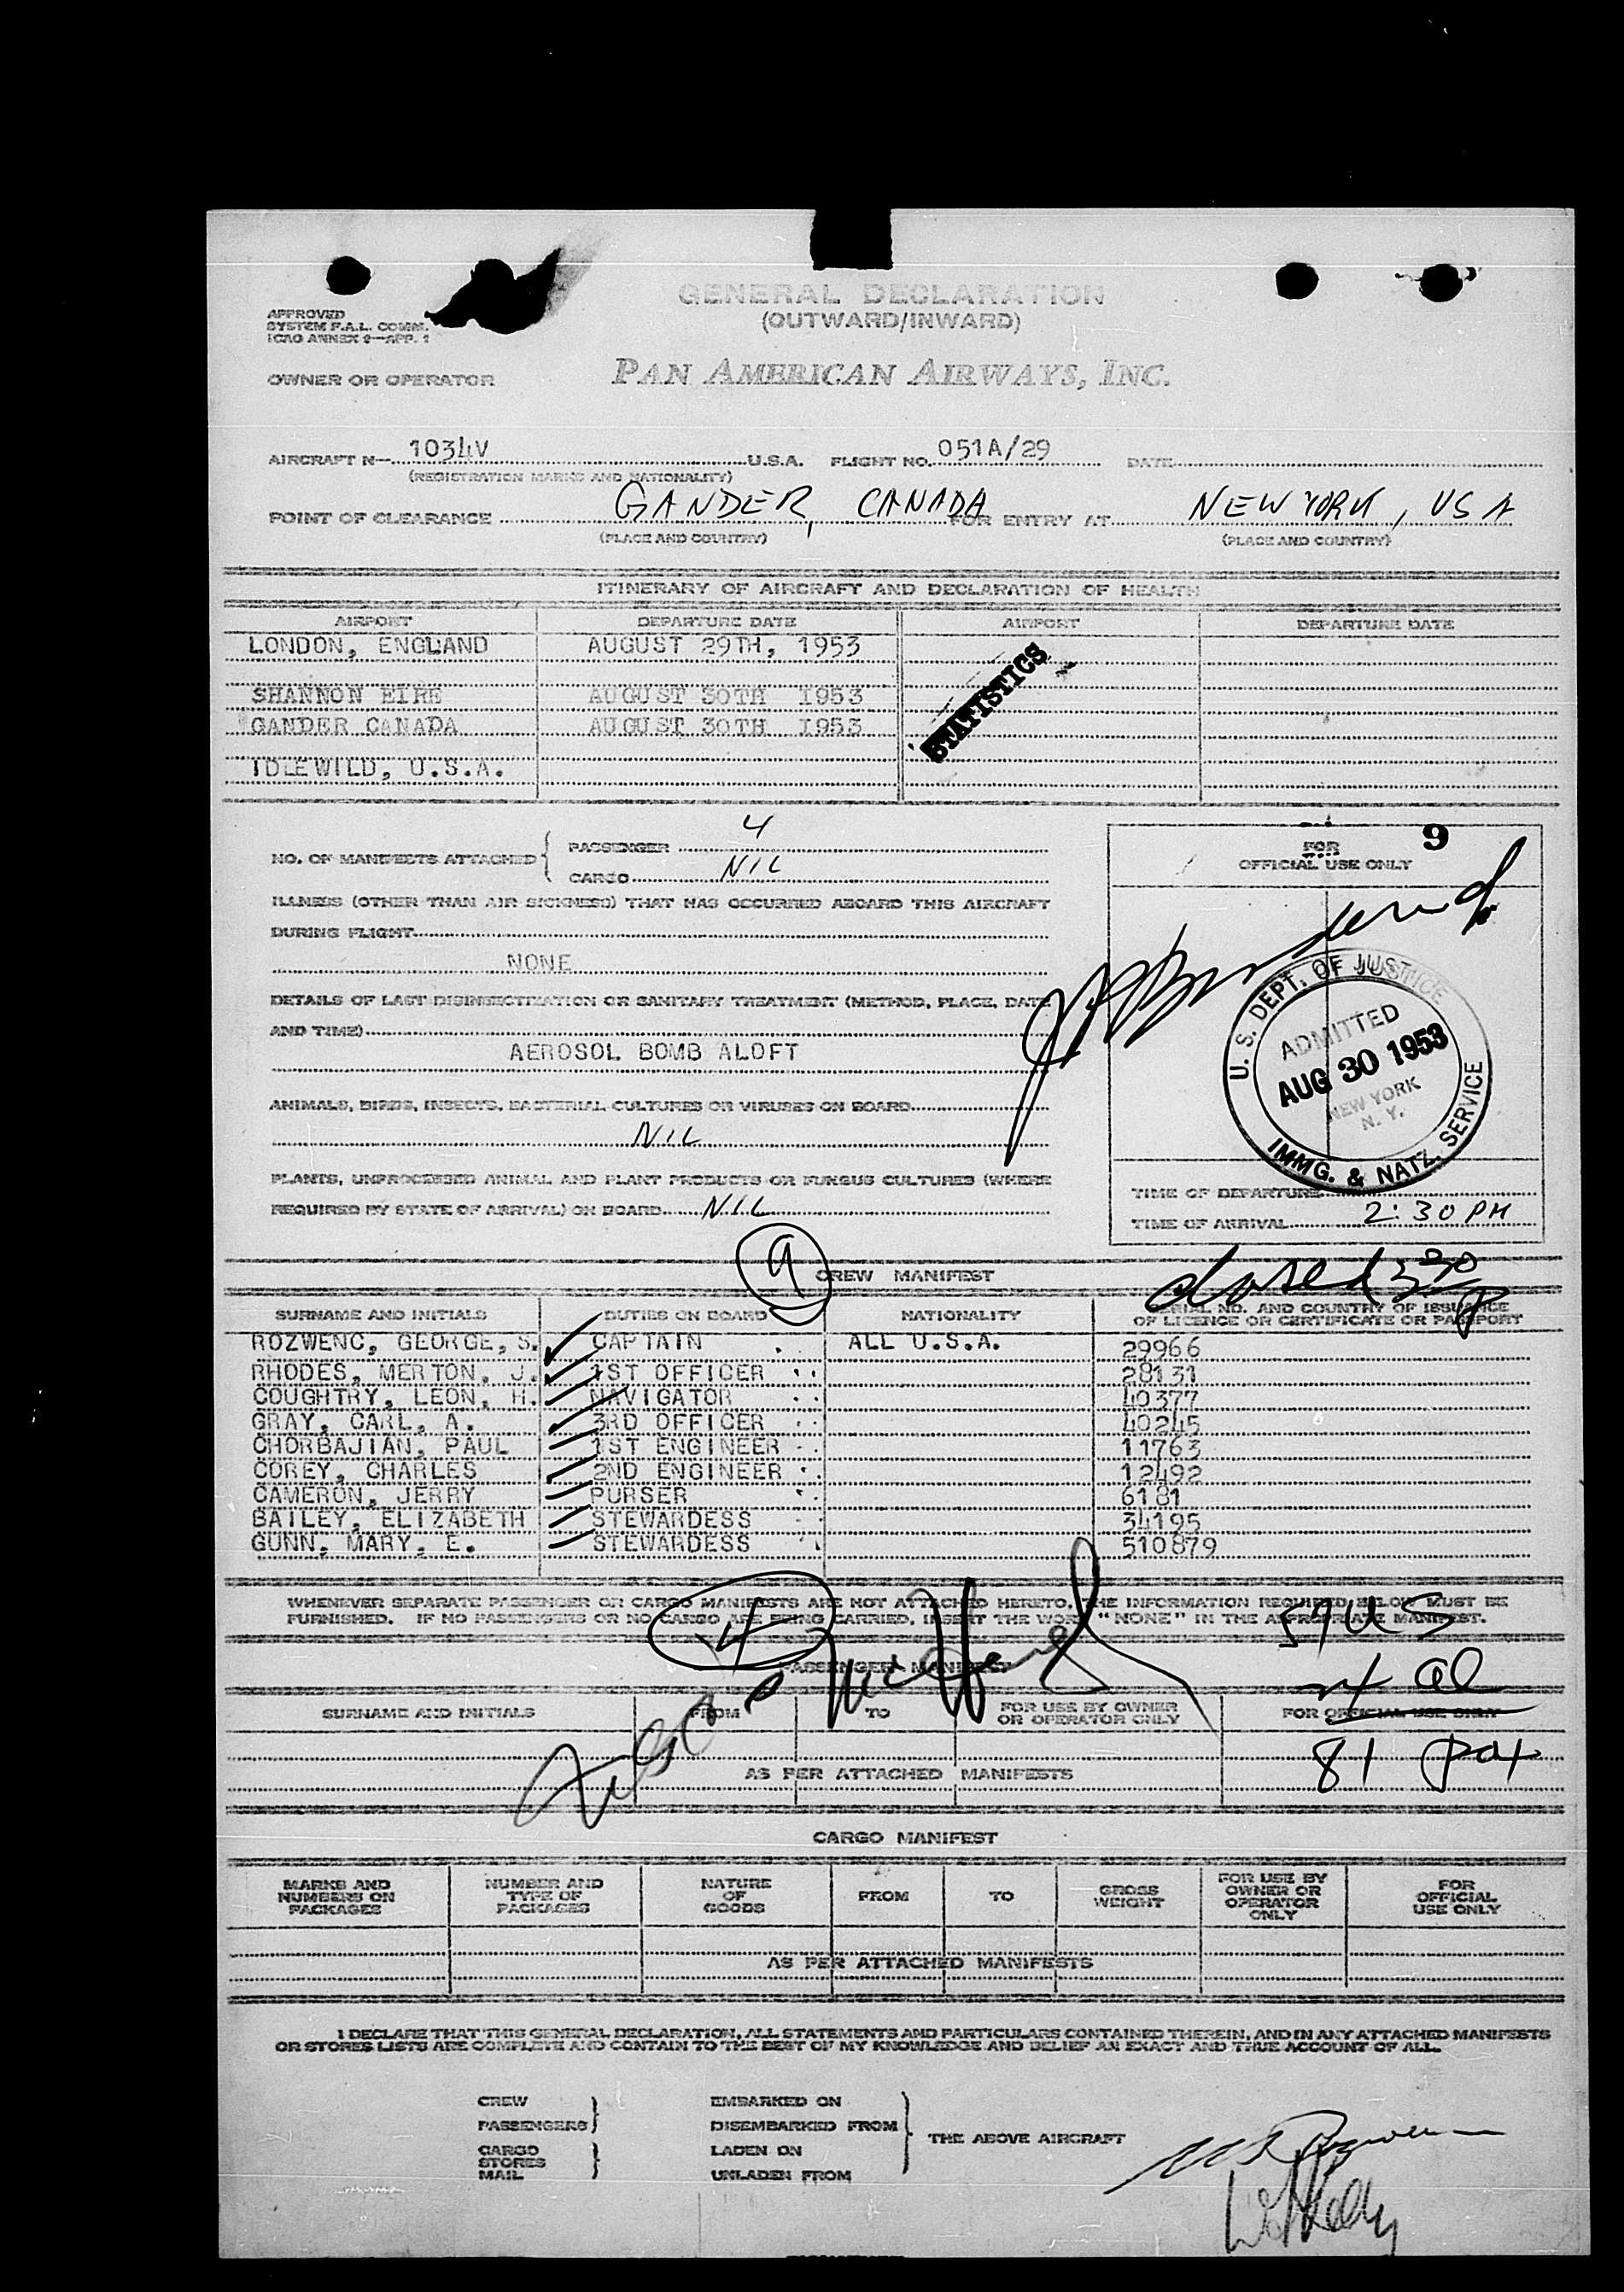 GENERAL DECLARATION
(OUTWARD/INWARD)
APPROVED
SYSTEM F.A.L. COMM.
ICAO ANNEX 9—APP. 1
OWNER OR OPERATOR PAN AMERICAN AIRWAYS, INC.
AIRCRAFT N— 1034V U.S.A. FLIGHT NO. 051A/29 DATE
(REGISTRATION MARKS AND NATIONALITY)
POINT OF CLEARANCE GANDER, CANADA FOR ENTRY AT NEW YORK, USA
(PLACE AND COUNTRY) (PLACE AND COUNTRY)
ITINERARY OF AIRCRAFT AND DECLARATION OF HEALTH
AIRPORT DEPARTURE DATE AIRPORT DEPARTURE DATE
LONDON, ENGLAND AUGUST 29TH, 1953
SHANNON EIRE AUGUST 30TH 1953
GANDER CANADA AUGUST 30TH 1953
IDLEWILD, U.S.A.
STATISTICS
NO. OF MANIFESTS ATTACHED PASSENGER 4
CARGO NIL
ILLNESS (OTHER THAN AIR SICKNESS) THAT HAS OCCURRED ABOARD THIS AIRCRAFT
DURING FLIGHT
NONE
DETAILS OF LAST DISINSECTIZATION OR SANITARY TREATMENT (METHOD, PLACE, DATE
AND TIME)
AEROSOL BOMB ALOFT
ANIMALS, BIRDS, INSECTS, BACTERIAL CULTURES OR VIRUSES ON BOARD
NIL
PLANTS, UNPROCESSED ANIMAL AND PLANT PRODUCTS OR FUNGUS CULTURES (WHERE
REQUIRED BY STATE OF ARRIVAL) ON BOARD NIL
9
FOR
OFFICIAL USE ONLY
U. S. DEPT. OF JUSTICE
ADMITTED
AUG 30 1953
NEW YORK
N. Y.
IMMG. & NATZ. SERVICE
TIME OF DEPARTURE
TIME OF ARRIVAL 2:30 PM
closed 3 30 p
9
CREW MANIFEST
SURNAME AND INITIALS DUTIES ON BOARD NATIONALITY SERIAL NO. AND COUNTRY OF ISSUANCE
OF LICENCE OR CERTIFICATE OR PASSPORT
ROZWENC, GEORGE, S. CAPTAIN ALL U.S.A. 29966
RHODES, MERTON, J. 1ST OFFICER 28131
COUGHTRY, LEON, H. NAVIGATOR 40377
GRAY, CARL, A. 3RD OFFICER 40245
CHORBAJIAN, PAUL 1ST ENGINEER 11763
COREY, CHARLES 2ND ENGINEER 12492
CAMERON, JERRY PURSER 6181
BAILEY, ELIZABETH STEWARDESS 34195
GUNN, MARY, E. STEWARDESS 510879
WHENEVER SEPARATE PASSENGER OR CARGO MANIFESTS ARE NOT ATTACHED HERETO, THE INFORMATION REQUIRED BELOW MUST BE
FURNISHED. IF NO PASSENGERS OR NO CARGO ARE BEING CARRIED, INSERT THE WORD "NONE" IN THE APPROPRIATE MANIFEST.
57 US
24 al
81 pax
PASSENGER MANIFEST
SURNAME AND INITIALS FROM TO FOR USE BY OWNER
OR OPERATOR ONLY FOR OFFICIAL USE ONLY
AS PER ATTACHED MANIFESTS
CARGO MANIFEST
MARKS AND
NUMBERS ON
PACKAGES NUMBER AND
TYPE OF
PACKAGES NATURE
OF
GOODS FROM TO GROSS
WEIGHT FOR USE BY
OWNER OR
OPERATOR
ONLY FOR
OFFICIAL
USE ONLY
AS PER ATTACHED MANIFESTS
I DECLARE THAT THIS GENERAL DECLARATION, ALL STATEMENTS AND PARTICULARS CONTAINED THEREIN, AND IN ANY ATTACHED MANIFESTS
OR STORES LISTS ARE COMPLETE AND CONTAIN TO THE BEST OF MY KNOWLEDGE AND BELIEF AN EXACT AND TRUE ACCOUNT OF ALL.
CREW EMBARKED ON
PASSENGERS DISEMBARKED FROM
THE ABOVE AIRCRAFT
CARGO LADEN ON
STORES
MAIL UNLADEN FROM